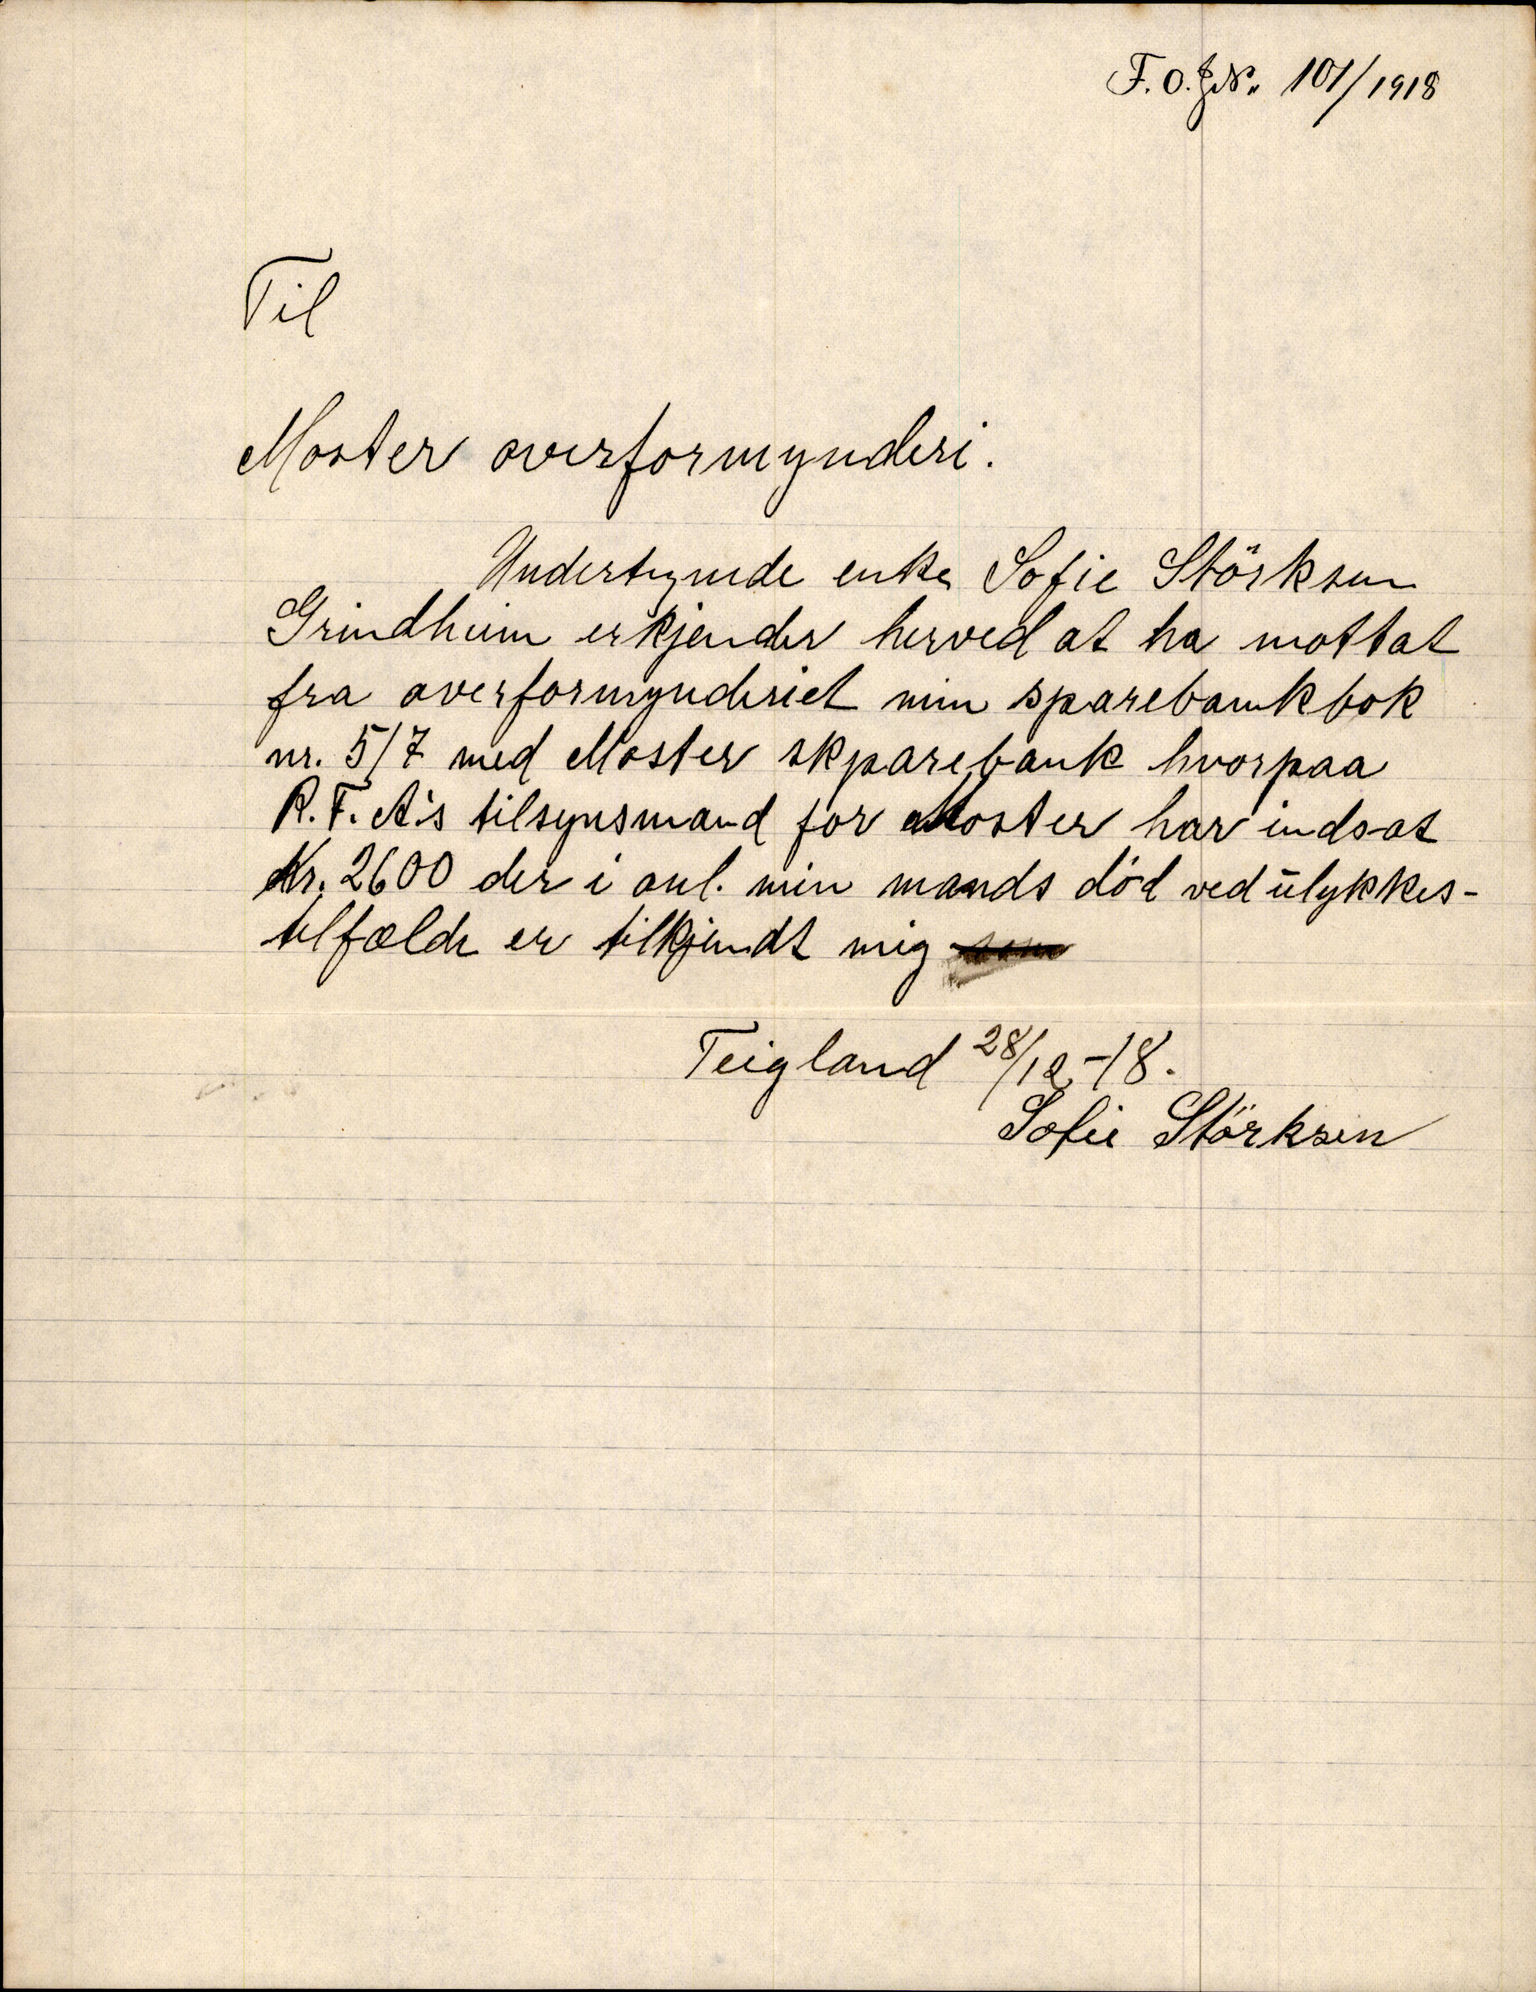 F. O. J. No. 101/1918
Til
Moster overformynderi.
Undertegnede enke Sofie Störksen
Grindheim erkjender herved at ha mottat
fra overformynderiet min sparebankbok
nr. 517 med Moster skparebank hvorpaa
R. F. A's tilsynsmand for Moster har indsat
Kr. 2600 der i anl. min mands död ved ulykkes-
tilfælde er tilkjendt mig som
Teigland 28/12-18.
Sofie Störksen